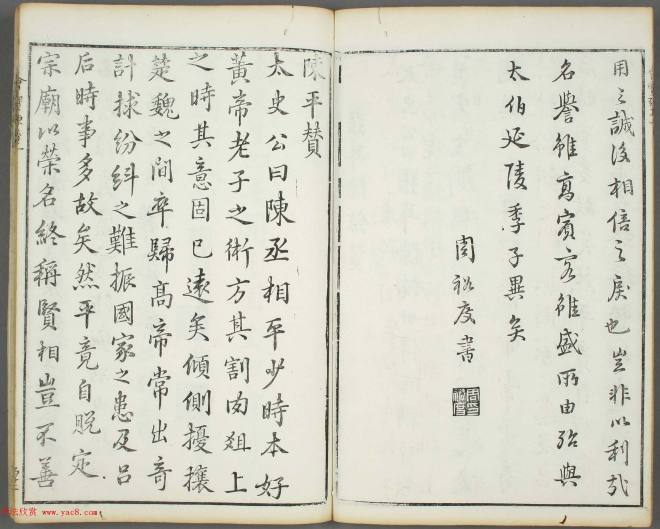 用之誠後相信之戾也豈非以利哉
名譽雖高賓客雖盛所由殆與
太伯延陵季子異矣
周裕度書
陳平贊
太史公曰陳丞相平少時本好
黃帝老子之術方其割肉俎上
之時其意固已遠矣傾側擾攘
楚魏之間卒歸高帝常出奇
計捄紛糾之難振國家之患及呂
后時事多故矣然平竟自脫定
宗廟以榮名終稱賢相豈不善
法欣賞 www.yac8.com